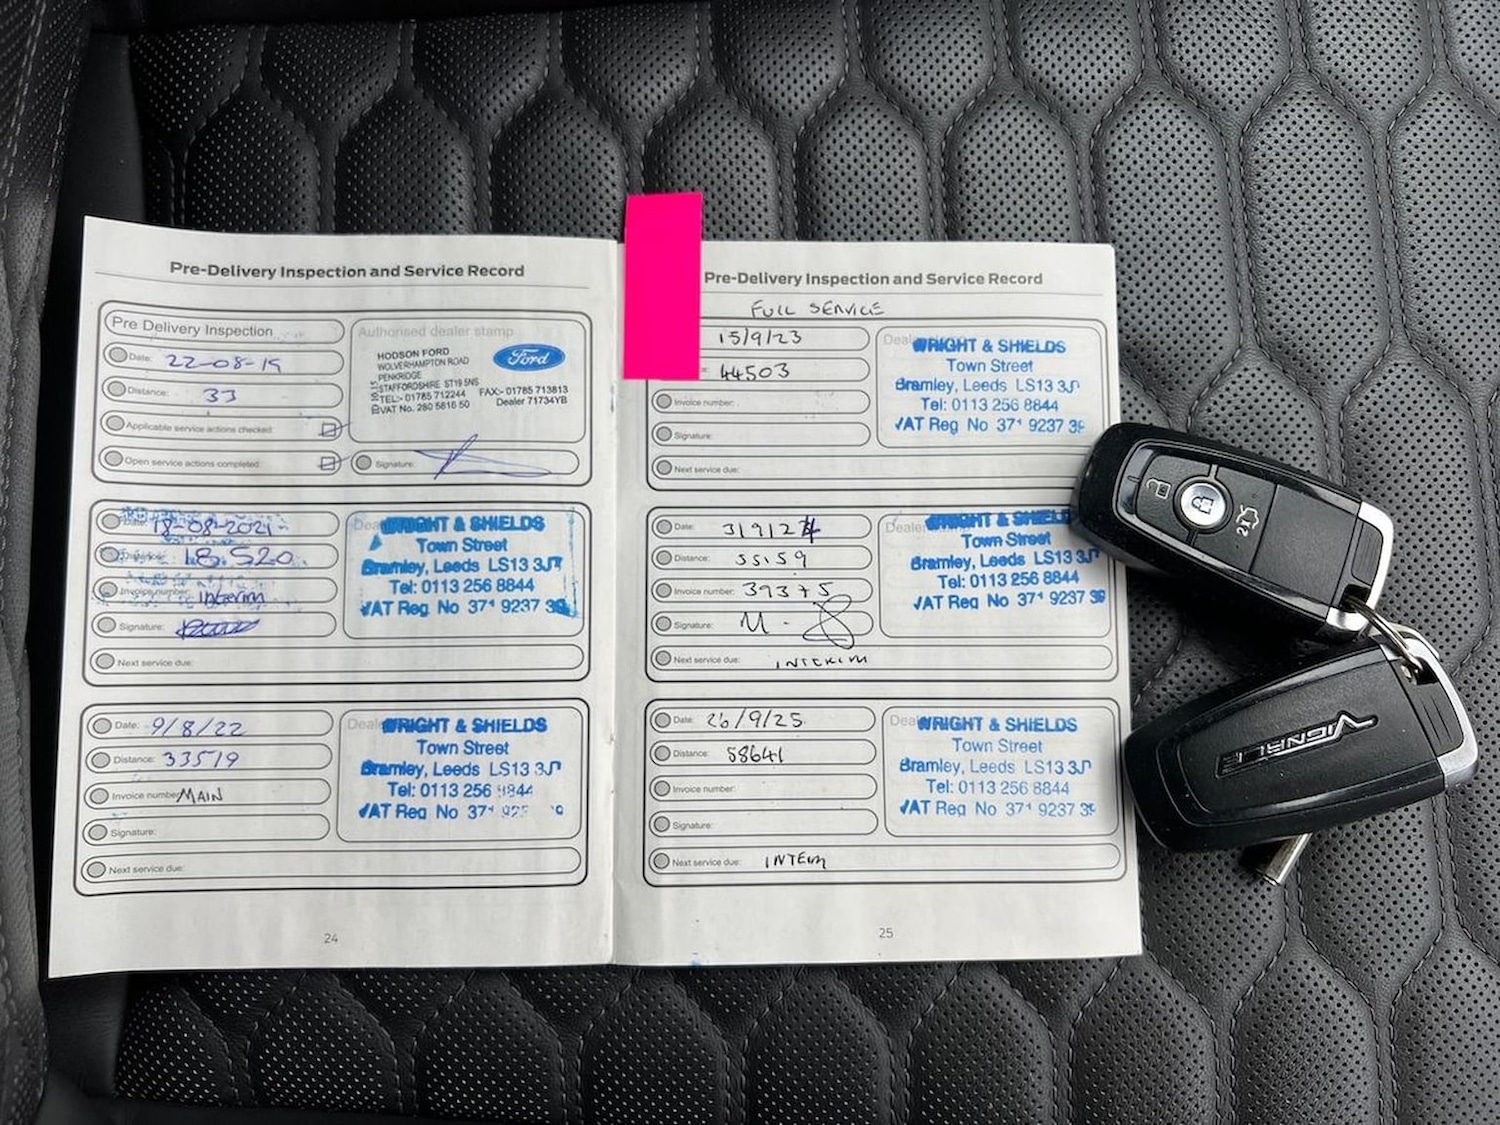 Pre-Delivery Inspection and Service Record
Pre Delivery Inspection
Date: 22-08-19
Distance: 33
Applicable service actions checked:
Open service actions completed:
Authorised dealer stamp
HODSON FORD
WOLVERHAMPTON ROAD
PENKRIDGE
STAFFORDSHIRE ST19 5NS
TEL:- 01785 712244 FAX:- 01785 713813
VAT No. 280 5616 50 Dealer 71734YB
Ford
Signature:
18-08-2021
18.520
Invoice number: Interim
Signature:
Next service due:
WRIGHT & SHIELDS
Town Street
Bramley, Leeds LS13 3J
Tel: 0113 256 8844
VAT Reg No 371 9237 39
Date: 9/8/22
Distance: 33519
Invoice number: MAIN
Signature:
Next service due:
WRIGHT & SHIELDS
Town Street
Bramley, Leeds LS13 3J
Tel: 0113 256 8844
VAT Reg No 371
24
Pre-Delivery Inspection and Service Record
FULL SERVICE
15/9/23
44503
Invoice number:
Signature:
Next service due:
WRIGHT & SHIELDS
Town Street
Bramley, Leeds LS13 3J
Tel: 0113 256 8844
VAT Reg No 371 9237 39
Date: 3/9/24
Distance: 55159
Invoice number: 39375
Signature:
Next service due: INTERIM
WRIGHT & SHIELDS
Town Street
Bramley, Leeds LS13 3J
Tel: 0113 256 8844
VAT Reg No 371 9237 39
Date: 26/9/25
Distance: 58641
Invoice number:
Signature:
Next service due: INTEIM
WRIGHT & SHIELDS
Town Street
Bramley, Leeds LS13 3J
Tel: 0113 256 8844
VAT Reg No 371 9237 39
25
VIGNALE